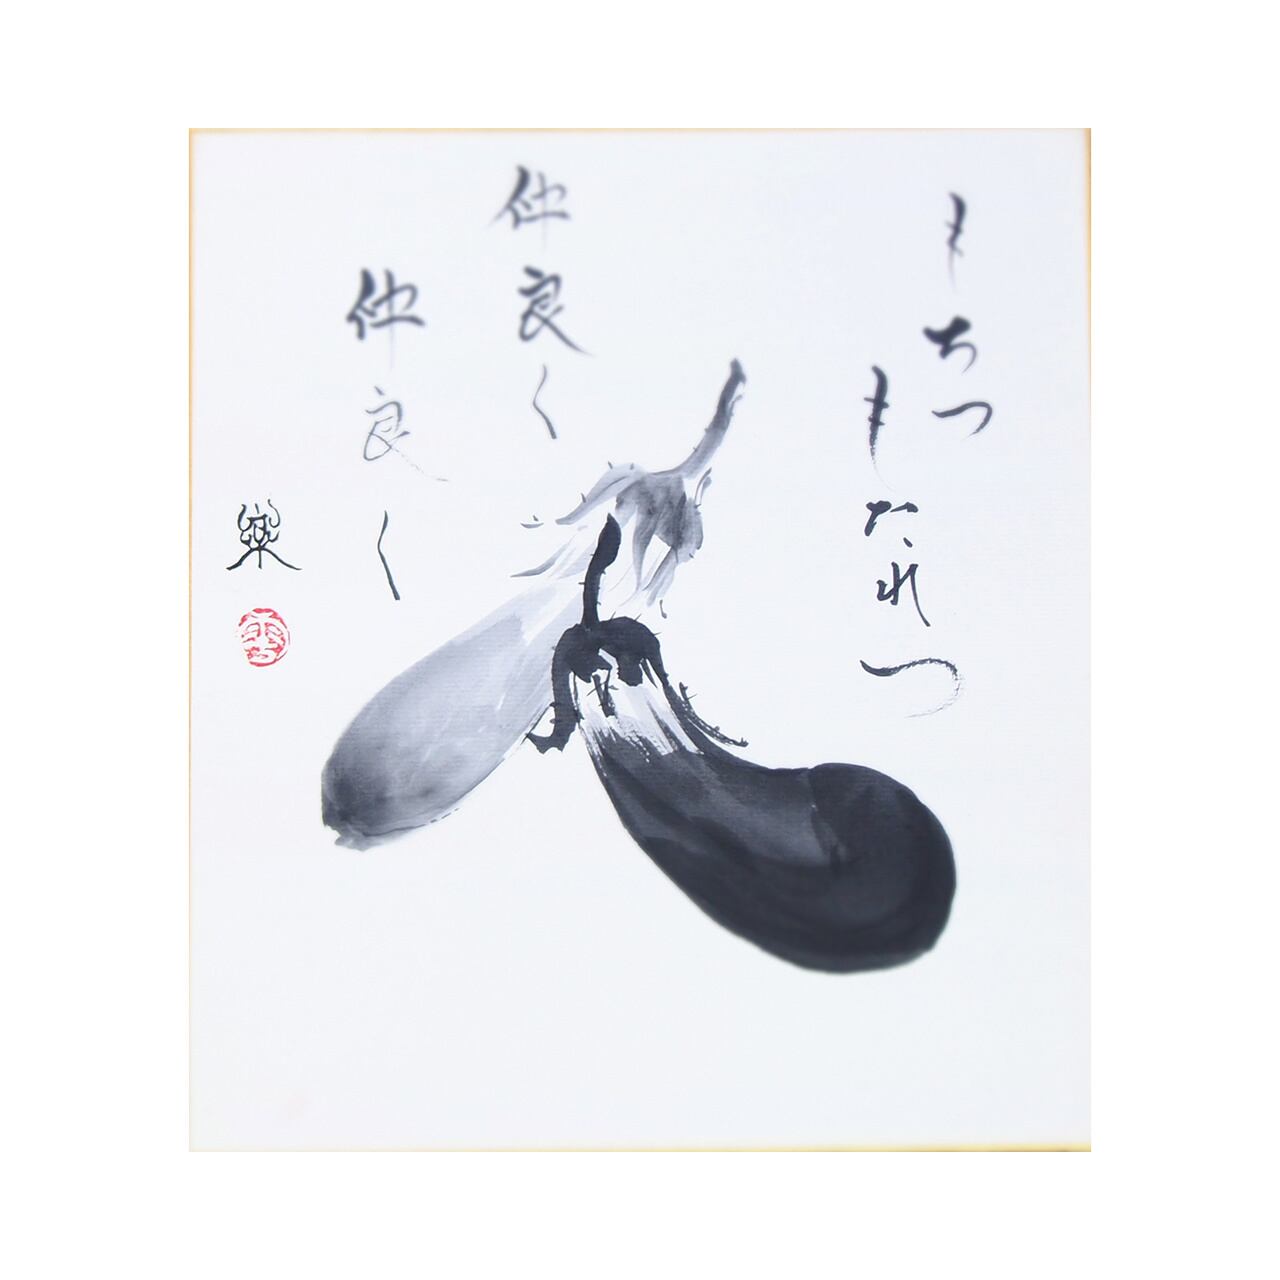 もちつ
もたれつ
仲良く
仲良く
樂